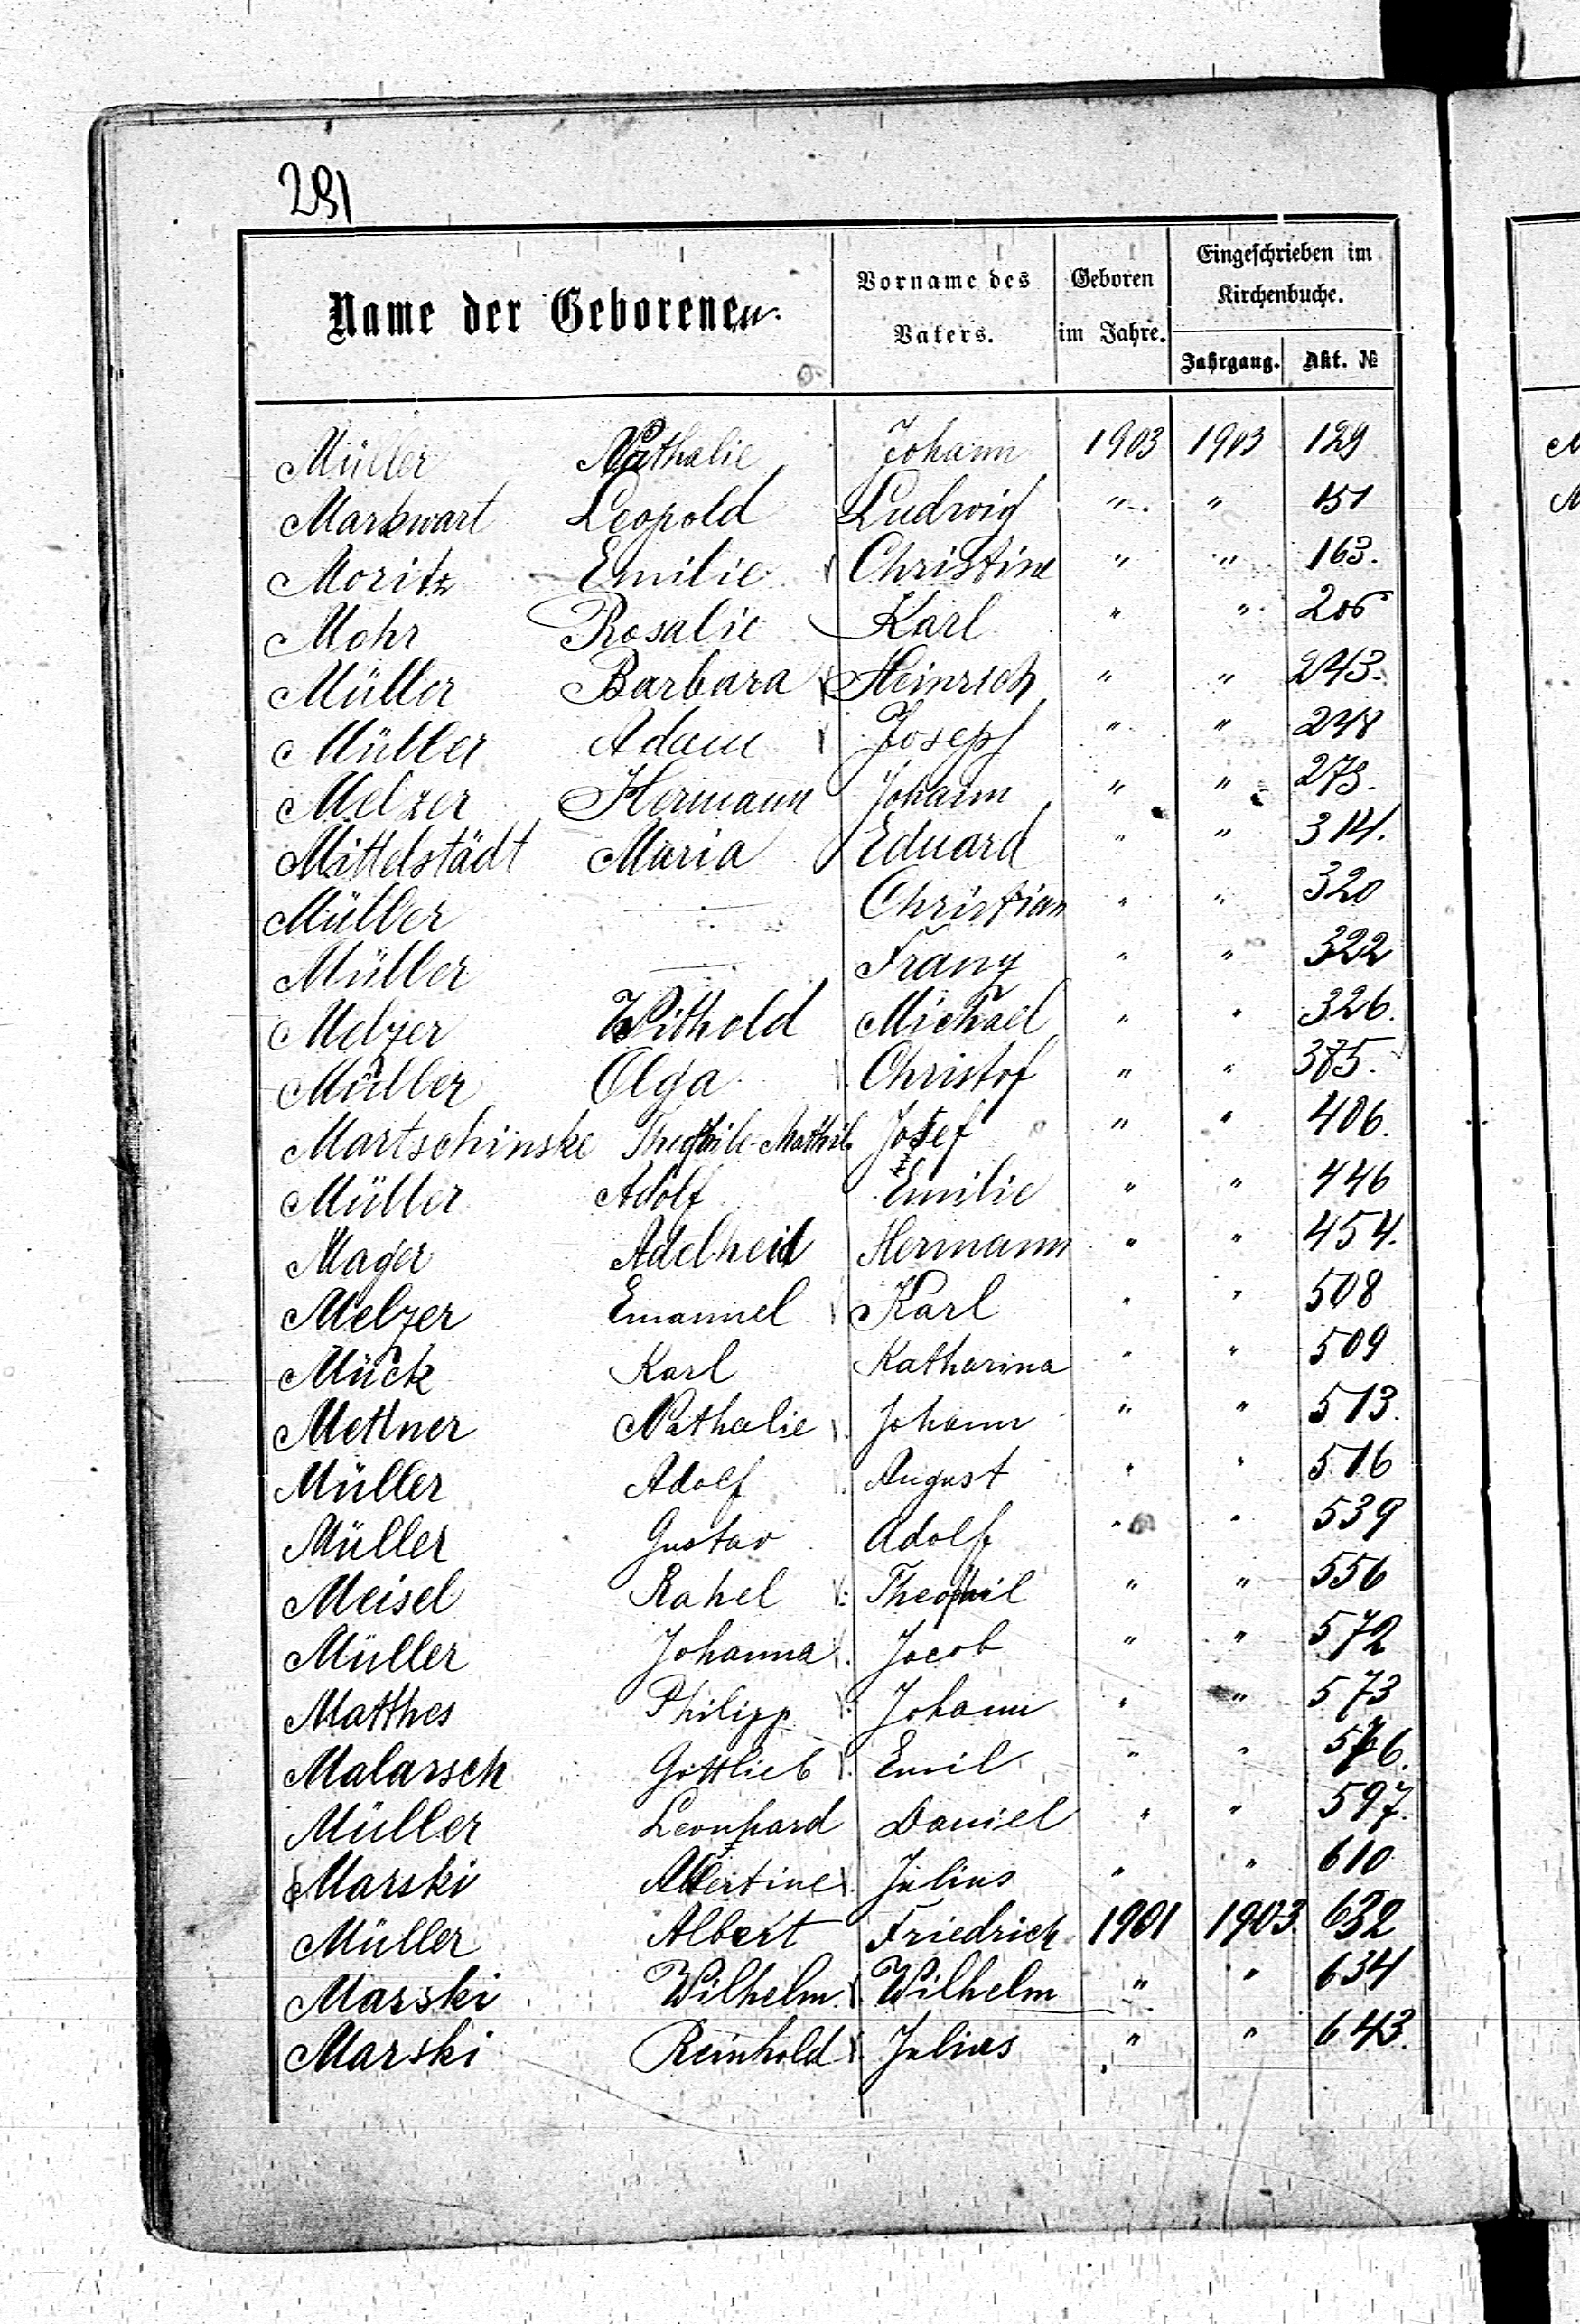 231
Name der Geborenen.
Vorname des Vaters.
Geboren im Jahre.
Eingeschrieben im Kirchenbuche.
Jahrgang. Akt. №
Müller Nathalie Johann 1903 1903 129
Markwart Leopold Ludwig " " 151
Moritz Emilie Christine " " 163.
Mohr Rosalie Karl " " 206
Müller Barbara Heinrich " " 243.
Müller Adam Joseph " " 248
Melzer Hermann Johann " " 273.
Mittelstädt Maria Eduard " " 314.
Müller — Christian " " 320
Müller — Franz " " 322
Melzer Withold Michael " " 326.
Müller Olga Christof " " 375.
Martschinske Theophile-Mathil. Josef " " 406.
Müller Adolf Emilie " " 446
Mager Adelheid Hermann " " 454.
Melzer Emanuel Karl " " 508
Mück Karl Katharina " " 509
Mettner Nathalie Johann " " 513.
Müller Adolf August " " 516
Müller Gustav Adolf " " 539
Meisel Rahel Theophil " " 556
Müller Johanna Jacob " " 572
Matthes Philipp Johann " " 573
Malarsch Gottlieb Emil " " 576.
Müller Leonhard Daniel " " 597.
Marski Albertine Julius " " 610
Müller Albert Friedrich 1901 1903. 632
Marski Wilhelm Wilhelm " " 634
Marski Reinhold Julius " " 643.